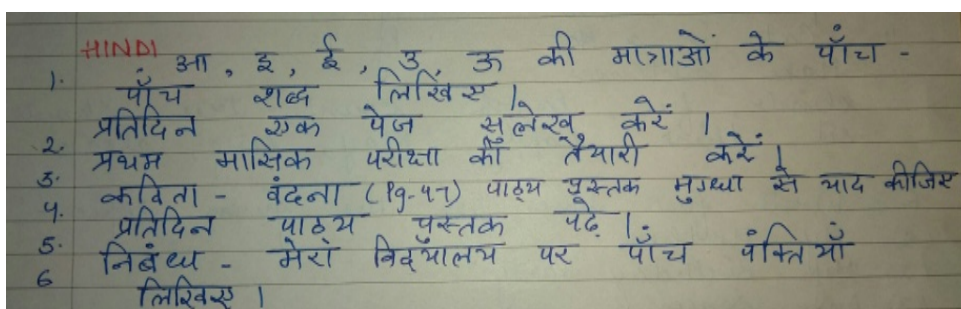 HINDI
1. आ, इ, ई, उ, ऊ की मात्राओं के पाँच -
पाँच शब्द लिखिए।
2. प्रतिदिन एक पेज सुलेख करें।
3. प्रथम मासिक परीक्षा की तैयारी करें।
4. कविता - वंदना (Pg-47) पाठ्य पुस्तक मुग्धा से याद कीजिए
5. प्रतिदिन पाठ्य पुस्तक पढ़े।
6 निबंध - मेरा विद्यालय पर पाँच पंक्तियाँ
लिखिए।